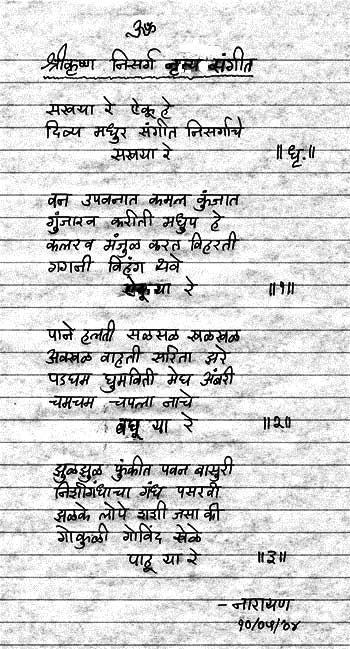 ॐ
श्रीकृष्ण निसर्ग नृत्य संगीत
सखया रे ऐकू हे
दिव्य मधुर संगीत निसर्गाचे
सखया रे ॥धृ.॥
वन उपवनात कमल कुंजात
गुंजारव करीती मधुप हे
कलरव मंजुळ करत विहरती
गगनी विहंग थवे
ऐकू या रे ॥१॥
पाने हलती सळसळ खळखळ
अवखळ वाहती सरिता झरे
पडघम घुमविती मेघ अंबरी
चमचम चपला नाचे
बघू या रे ॥२॥
झुळझुळ फुंकीत पवन बासुरी
निशीगंधाचा गंध पसरवी
झळके लोपे शशी जसा की
गोकुळी गोविंद खेळे
पाहू या रे ॥३॥
- नारायण
१०/०५/